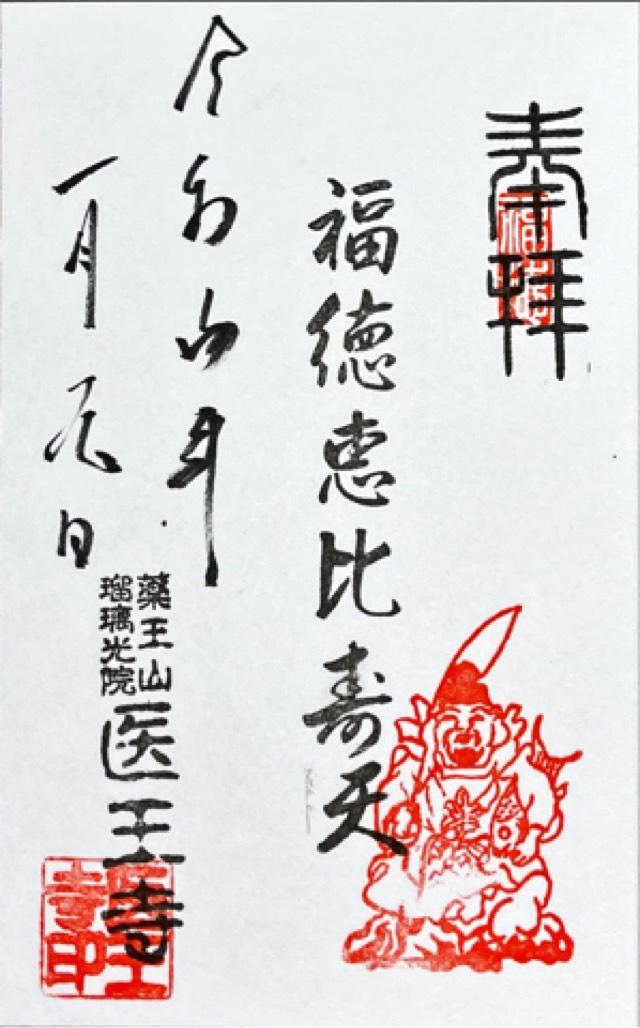 奉拝
福徳恵比寿天
令和年
一月元日
藥王山
瑠璃光院
医王寺